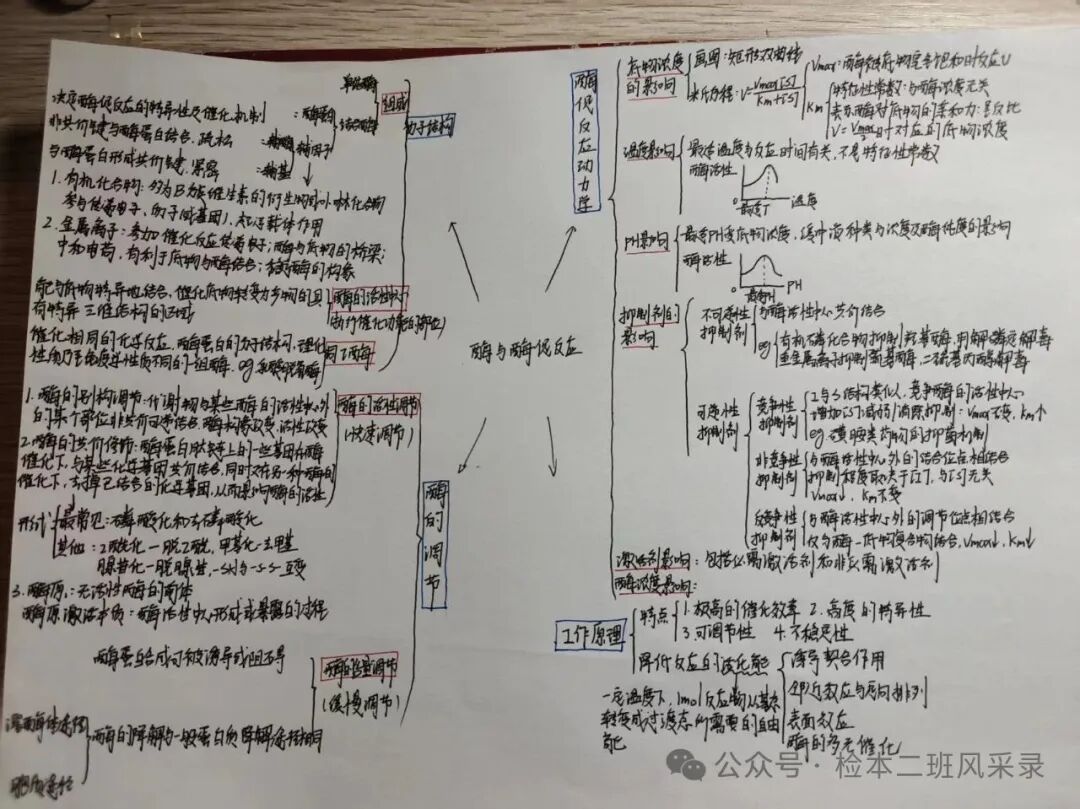 酶与酶促反应
分子结构
组成
单纯酶
结合酶
:酶蛋白
辅因子
:辅酶
:辅基
决定酶促反应的特异性及催化机制
非共价键与酶蛋白结合,疏松
与酶蛋白形成共价键,紧密
1. 有机化合物:多为B族维生素的衍生物或卟啉化合物
参与传递电子,质子(或基团),起运载体作用
2. 金属离子:参加催化反应传递电子;酶与底物的桥梁;
中和电荷,有利于底物与酶结合;稳定酶的构象
酶的活性中心
(执行催化功能的部位)
能与底物特异地结合,催化底物转变为产物的具
有特异三维结构的区域
同工酶
催化相同的化学反应,酶蛋白的分子结构,理化
性质乃至免疫学性质不同的一组酶,eg
酶的调节
酶的活性调节
(快速调节)
1. 酶的别构调节:代谢物与某些酶的活性中心外
的某个部位非共价可逆结合,酶构象改变,活性改变
2. 酶的共价修饰:酶蛋白肽链上的一些基团在酶
催化下,与某些化学基团共价结合,同时又在另一种酶的
催化下,去掉已结合的化学基团,从而影响酶的活性
形式
最常见:磷酸化和去磷酸化
其他:乙酰化—脱乙酰,甲基化—去甲基
腺苷化—脱腺苷,-SH与-S-S-互变
3. 酶原:无活性酶的前体
酶原激活本质:酶活性中心形成或暴露的过程
酶的含量调节
(缓慢调节)
酶蛋白合成可被诱导或阻遏
酶的降解与一般蛋白质降解途径相同
溶酶体途径
酶促反应动力学
底物浓度
的影响
画图:矩形双曲线
米氏方程:V=Vmax[S]/Km+[S]
Vmax:酶被底物完全饱和时反应V
Km
特征性常数:与酶浓度无关
表示酶对底物的亲和力:呈反比
V=½Vmax时对应的底物浓度
温度影响
最适温度与反应时间有关,不是特征性常数
酶活性
最适T
温度
PH影响
最适PH受底物浓度,缓冲液种类与浓度及酶纯度的影响
酶活性
最适PH
PH
抑制剂的
影响
不可逆性
抑制剂
与酶活性中心共价结合
eg
有机磷化合物抑制羟基酶,用解磷定解毒
重金属离子抑制巯基酶,二巯基丙醇解毒
可逆性
抑制剂
竞争性
抑制剂
I与S结构类似,竞争酶的活性中心
增加[S]减弱/消除抑制:Vmax不变,Km↑
eg.磺胺类药物的抑菌机制
非竞争性
抑制剂
与酶活性中心外的结合位点相结合
抑制程度取决于[I],与[S]无关
Vmax↓,Km不变
反竞争性
抑制剂
与酶活性中心外的调节位点相结合
仅与酶-底物复合物结合,Vmax↓,Km↓
激活剂影响:包括必需激活剂和非必需激活剂
酶浓度影响:
工作原理
特点
1. 极高的催化效率 2. 高度的特异性
3. 可调节性 4. 不稳定性
降低反应的活化能
诱导契合作用
邻近效应与定向排列
表面效应
酶的多元催化
一定温度下,1mol反应物从基态
转变成过渡态所需要的自由
能
公众号·检本二班风采录